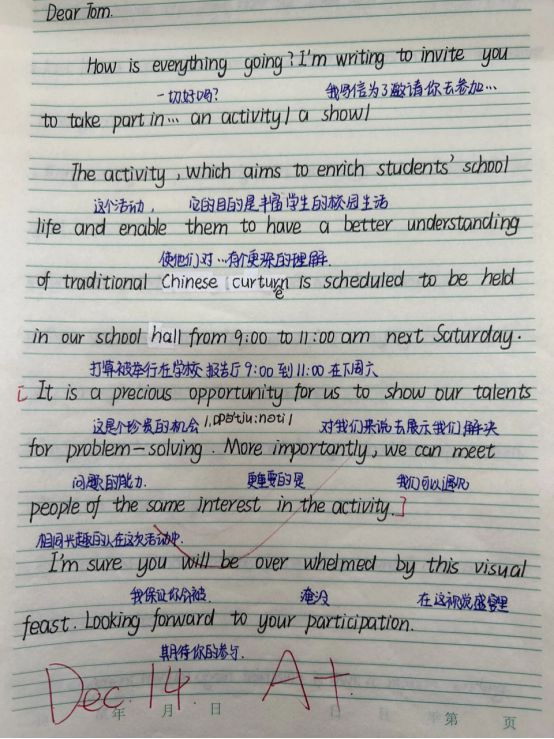 Dear Tom.
How is everything going? I'm writing to invite you
一切好吗? 我写信为了邀请你去参加…
to take part in… an activity/ a show/
The activity, which aims to enrich students' school
这个活动, 它的目的是丰富学生的校园生活
life and enable them to have a better understanding
使他们对…有个更深的理解.
of traditional Chinese curturn is scheduled to be held
e
in our school hall from 9:00 to 11:00 am next Saturday.
打算被举行在学校报告厅 9:00 到 11:00 在下周六
[ It is a precious opportunity for us to show our talents
这是个珍贵的机会 /,ɒpə'tju:nəti/ 对我们来说去展示我们解决
for problem-solving. More importantly, we can meet
问题的能力. 更重要的是 我们可以遇见
people of the same interest in the activity. ]
相同兴趣的人在这次活动中.
I'm sure you will be over whelmed by this visual
我保证你会被 淹没 在这视觉盛宴里
feast. Looking forward to your participation.
期待你的参与.
Dec. 14. A+
年 月 日 日 第 页